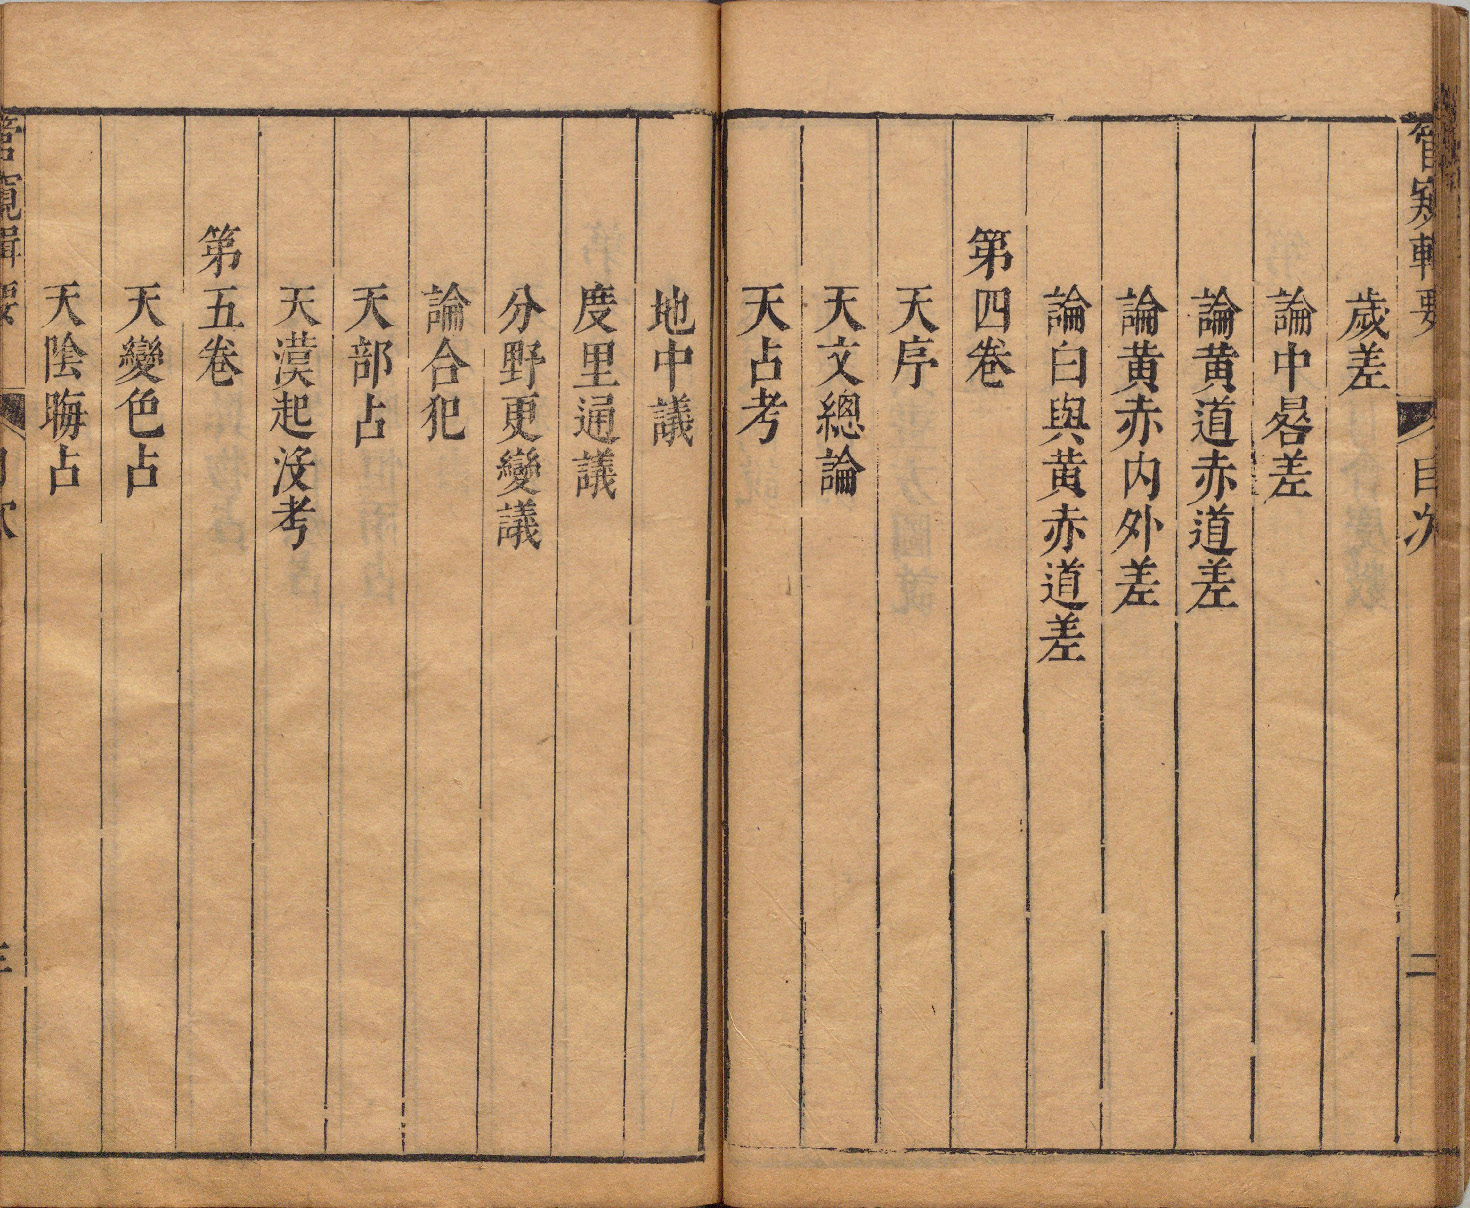 管窺輯要
目次
二
歲差
論中晷差
論黄道赤道差
論黄赤内外差
論白與黄赤道差
第四卷
天序
天文總論
天占考
地中議
度里通議
分野更變議
論合犯
天部占
天漠起没考
第五卷
天變色占
天陰晦占
管窺輯要
目次
三